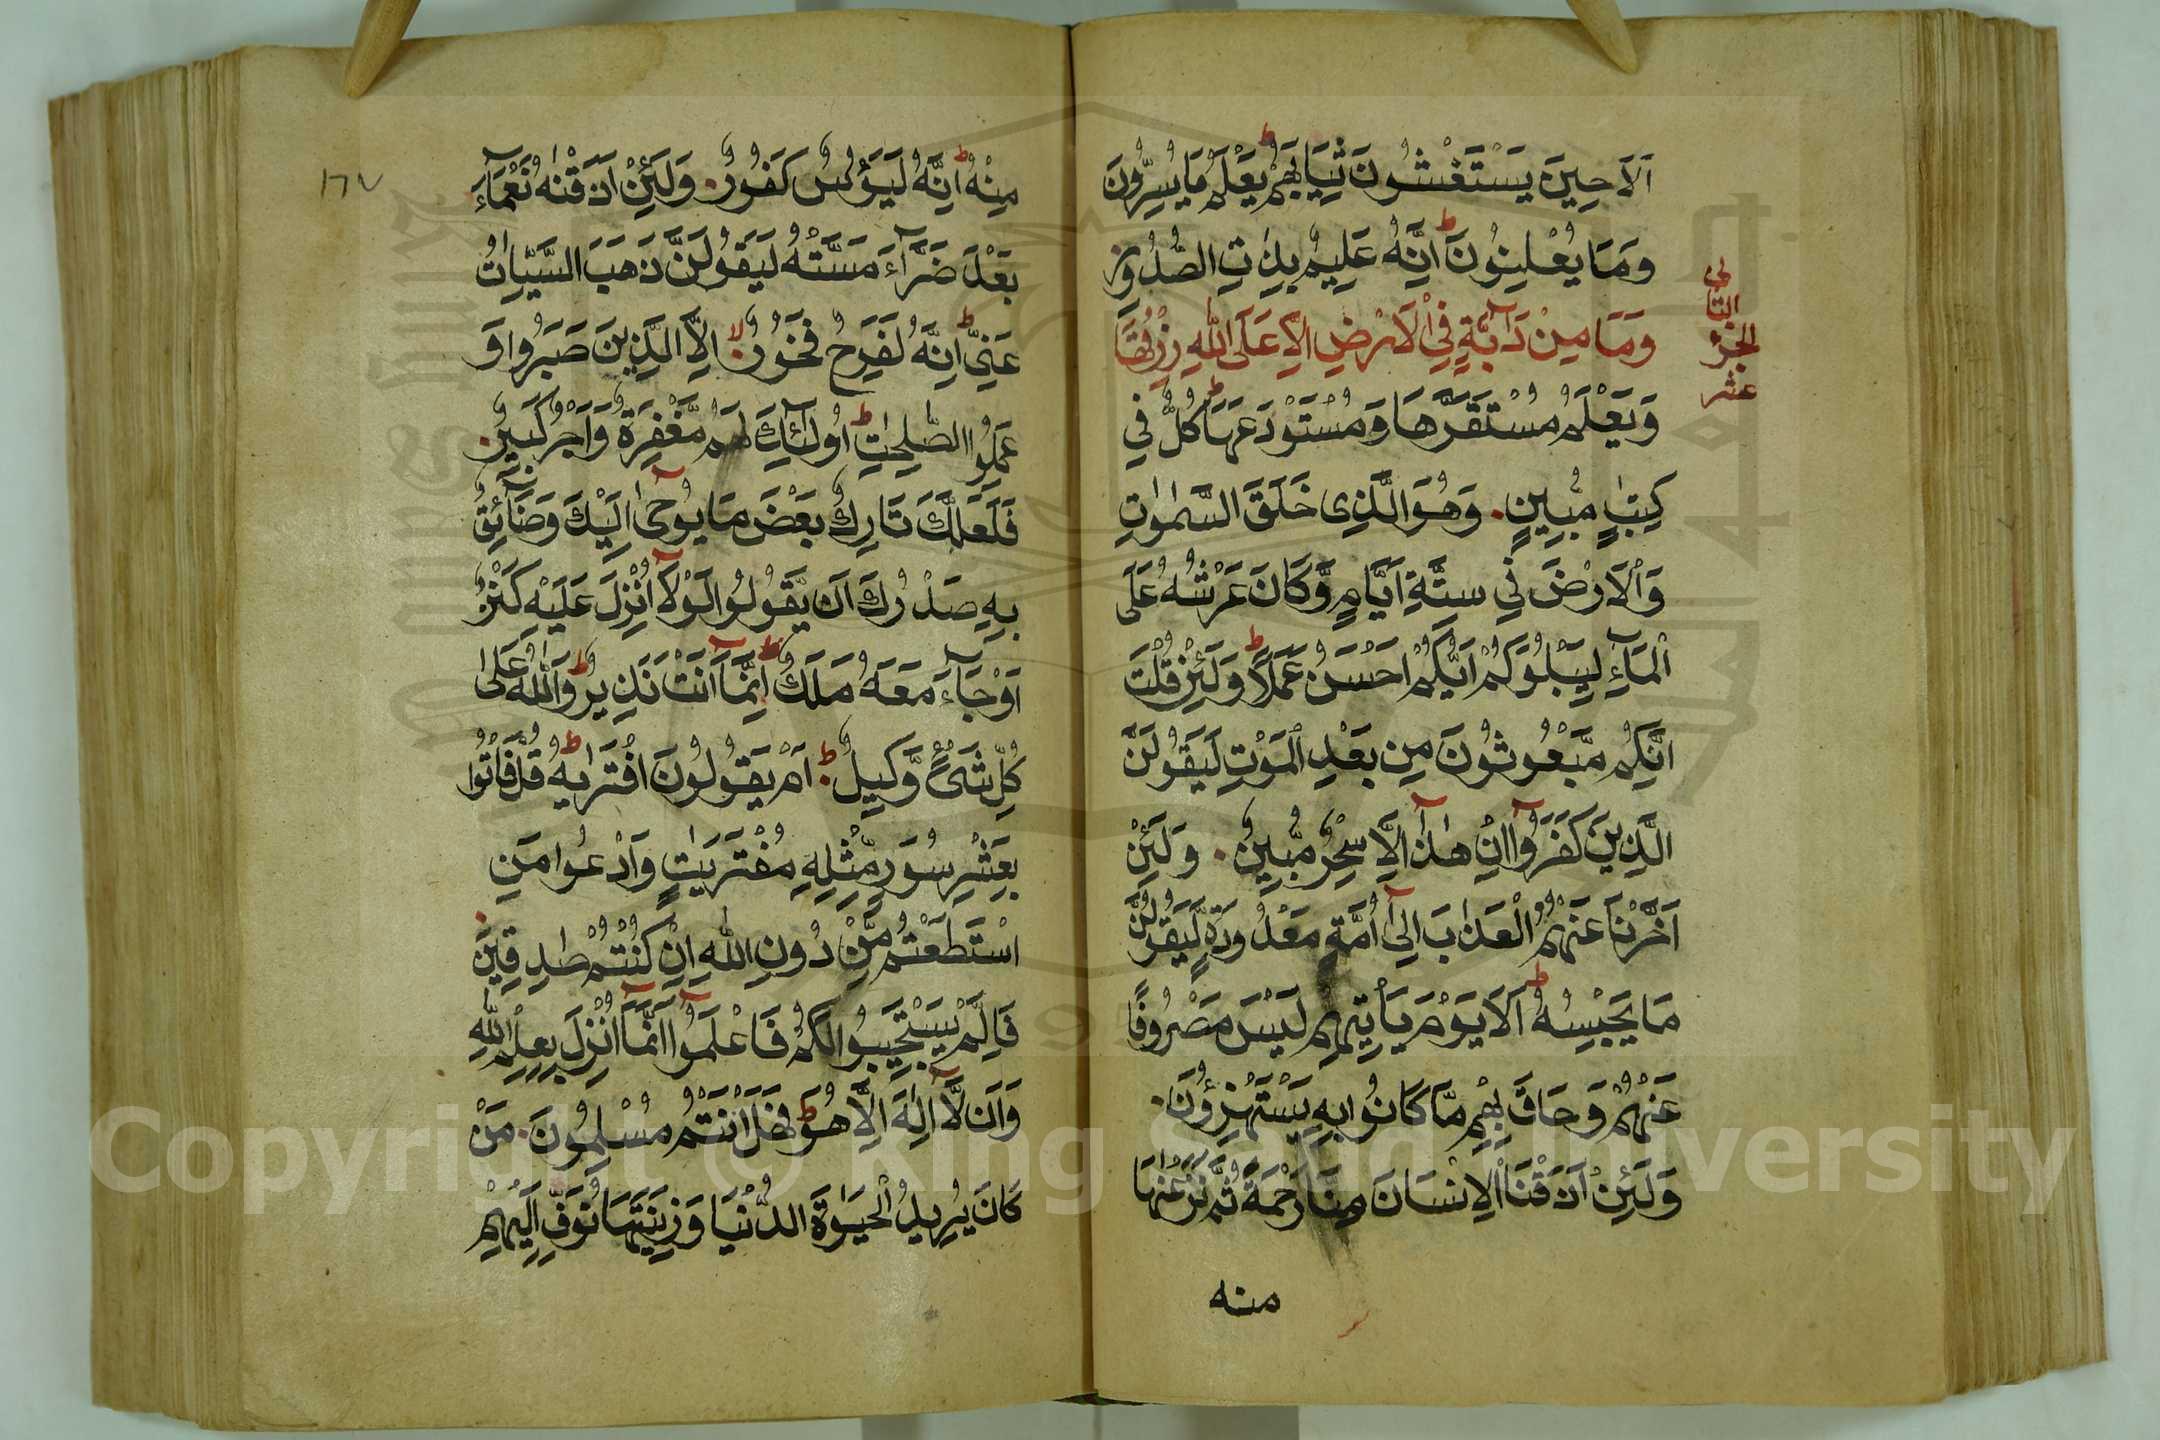 اَلَا حِينَ يَسْتَغْشُونَ ثِيَابَهُمْ يَعْلَمُ مَا يُسِرُّونَ
وَمَا يُعْلِنُونَ اِنَّهُ عَلِيمٌ بِذَاتِ الصُّدُورِ
وَمَا مِنْ دَآبَّةٍ فِي الْاَرْضِ اِلَّا عَلَى اللّٰهِ رِزْقُهَا
وَيَعْلَمُ مُسْتَقَرَّهَا وَمُسْتَوْدَعَهَا كُلٌّ فِي
كِتٰبٍ مُّبِينٍ وَهُوَ الَّذِى خَلَقَ السَّمٰوٰتِ
وَالْاَرْضَ فِي سِتَّةِ اَيَّامٍ وَّكَانَ عَرْشُهُ عَلَى
الْمَآءِ لِيَبْلُوَكُمْ اَيُّكُمْ اَحْسَنُ عَمَلًا وَلَئِنْ قُلْتَ
اِنَّكُمْ مَّبْعُوثُونَ مِن بَعْدِ الْمَوْتِ لَيَقُولَنَّ
الَّذِينَ كَفَرُوآ اِنْ هٰذَآ اِلَّا سِحْرٌ مُّبِينٌ وَلَئِنْ
اَخَّرْنَا عَنْهُمُ الْعَذَابَ اِلٰٓى اُمَّةٍ مَعْدُودَةٍ لَّيَقُولُنَّ
مَا يَحْبِسُهُ اَلَا يَوْمَ يَأْتِيهِمْ لَيْسَ مَصْرُوفًا
عَنْهُمْ وَحَاقَ بِهِمْ مَّا كَانُوا بِهِ يَسْتَهْزِءُونَ
وَلَئِنْ اَذَقْنَا الْاِنْسَانَ مِنَّا رَحْمَةً ثُمَّ نَزَعْنٰهَا
منه
الجزء الثاني عشر
١٦٧
مِنْهُ اِنَّهُ لَيَؤُسٌ كَفُورٌ وَلَئِنْ اَذَقْنٰهُ نَعْمَآءَ
بَعْدَ ضَرَّآءَ مَسَّتْهُ لَيَقُولَنَّ ذَهَبَ السَّيِّاٰتُ
عَنِّى اِنَّهُ لَفَرِحٌ فَخُورٌ اِلَّا الَّذِينَ صَبَرُوا وَ
عَمِلُوا الصّٰلِحٰتِ اُولٰٓئِكَ لَهُمْ مَّغْفِرَةٌ وَّاَجْرٌ كَبِيرٌ
فَلَعَلَّكَ تَارِكٌ بَعْضَ مَا يُوحٰٓى اِلَيْكَ وَضَآئِقٌ
بِهِ صَدْرُكَ اَنْ يَّقُولُوا لَوْلَآ اُنْزِلَ عَلَيْهِ كَنْزٌ
اَوْ جَآءَ مَعَهُ مَلَكٌ اِنَّمَآ اَنْتَ نَذِيرٌ وَاللّٰهُ عَلٰى
كُلِّ شَىْءٍ وَّكِيلٌ اَمْ يَقُولُونَ افْتَرٰىهُ قُلْ فَاْتُوا
بِعَشْرِ سُوَرٍ مِّثْلِهِ مُفْتَرَيٰتٍ وَادْعُوا مَنِ
اسْتَطَعْتُمْ مِّنْ دُونِ اللّٰهِ اِنْ كُنْتُمْ صٰدِقِينَ
فَاِلَّمْ يَسْتَجِيبُوا لَكُمْ فَاعْلَمُوآ اَنَّمَآ اُنْزِلَ بِعِلْمِ اللّٰهِ
وَاَن لَّآ اِلٰهَ اِلَّا هُوَ فَهَلْ اَنْتُمْ مُسْلِمُونَ مَنْ
كَانَ يُرِيدُ الْحَيٰوةَ الدُّنْيَا وَزِينَتَهَا نُوَفِّ اِلَيْهِمْ
Copyright © King Saud University